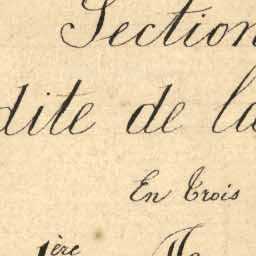 Section
dite de la
En Trois
1ère